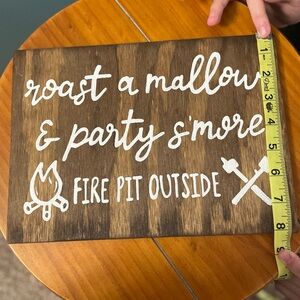 roast a mallow
& party s'more
FIRE PIT OUTSIDE
1
2
3
4
5
6
7
8
9